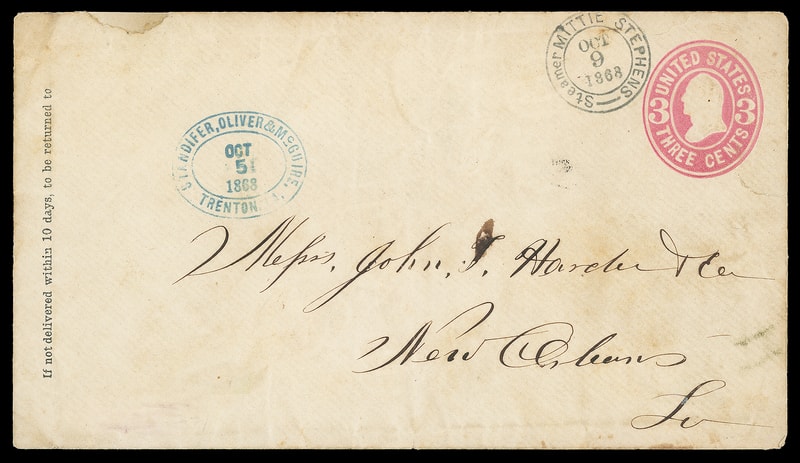 Steamer MITTIE STEPHENS
OCT
9
1868
UNITED STATES
3 3
THREE CENTS
STANDIFER, OLIVER & McGUIRE,
OCT
5
1868
TRENTON
If not delivered within 10 days, to be returned to
Messrs. John. T. Hardie & Co
New Orleans
La